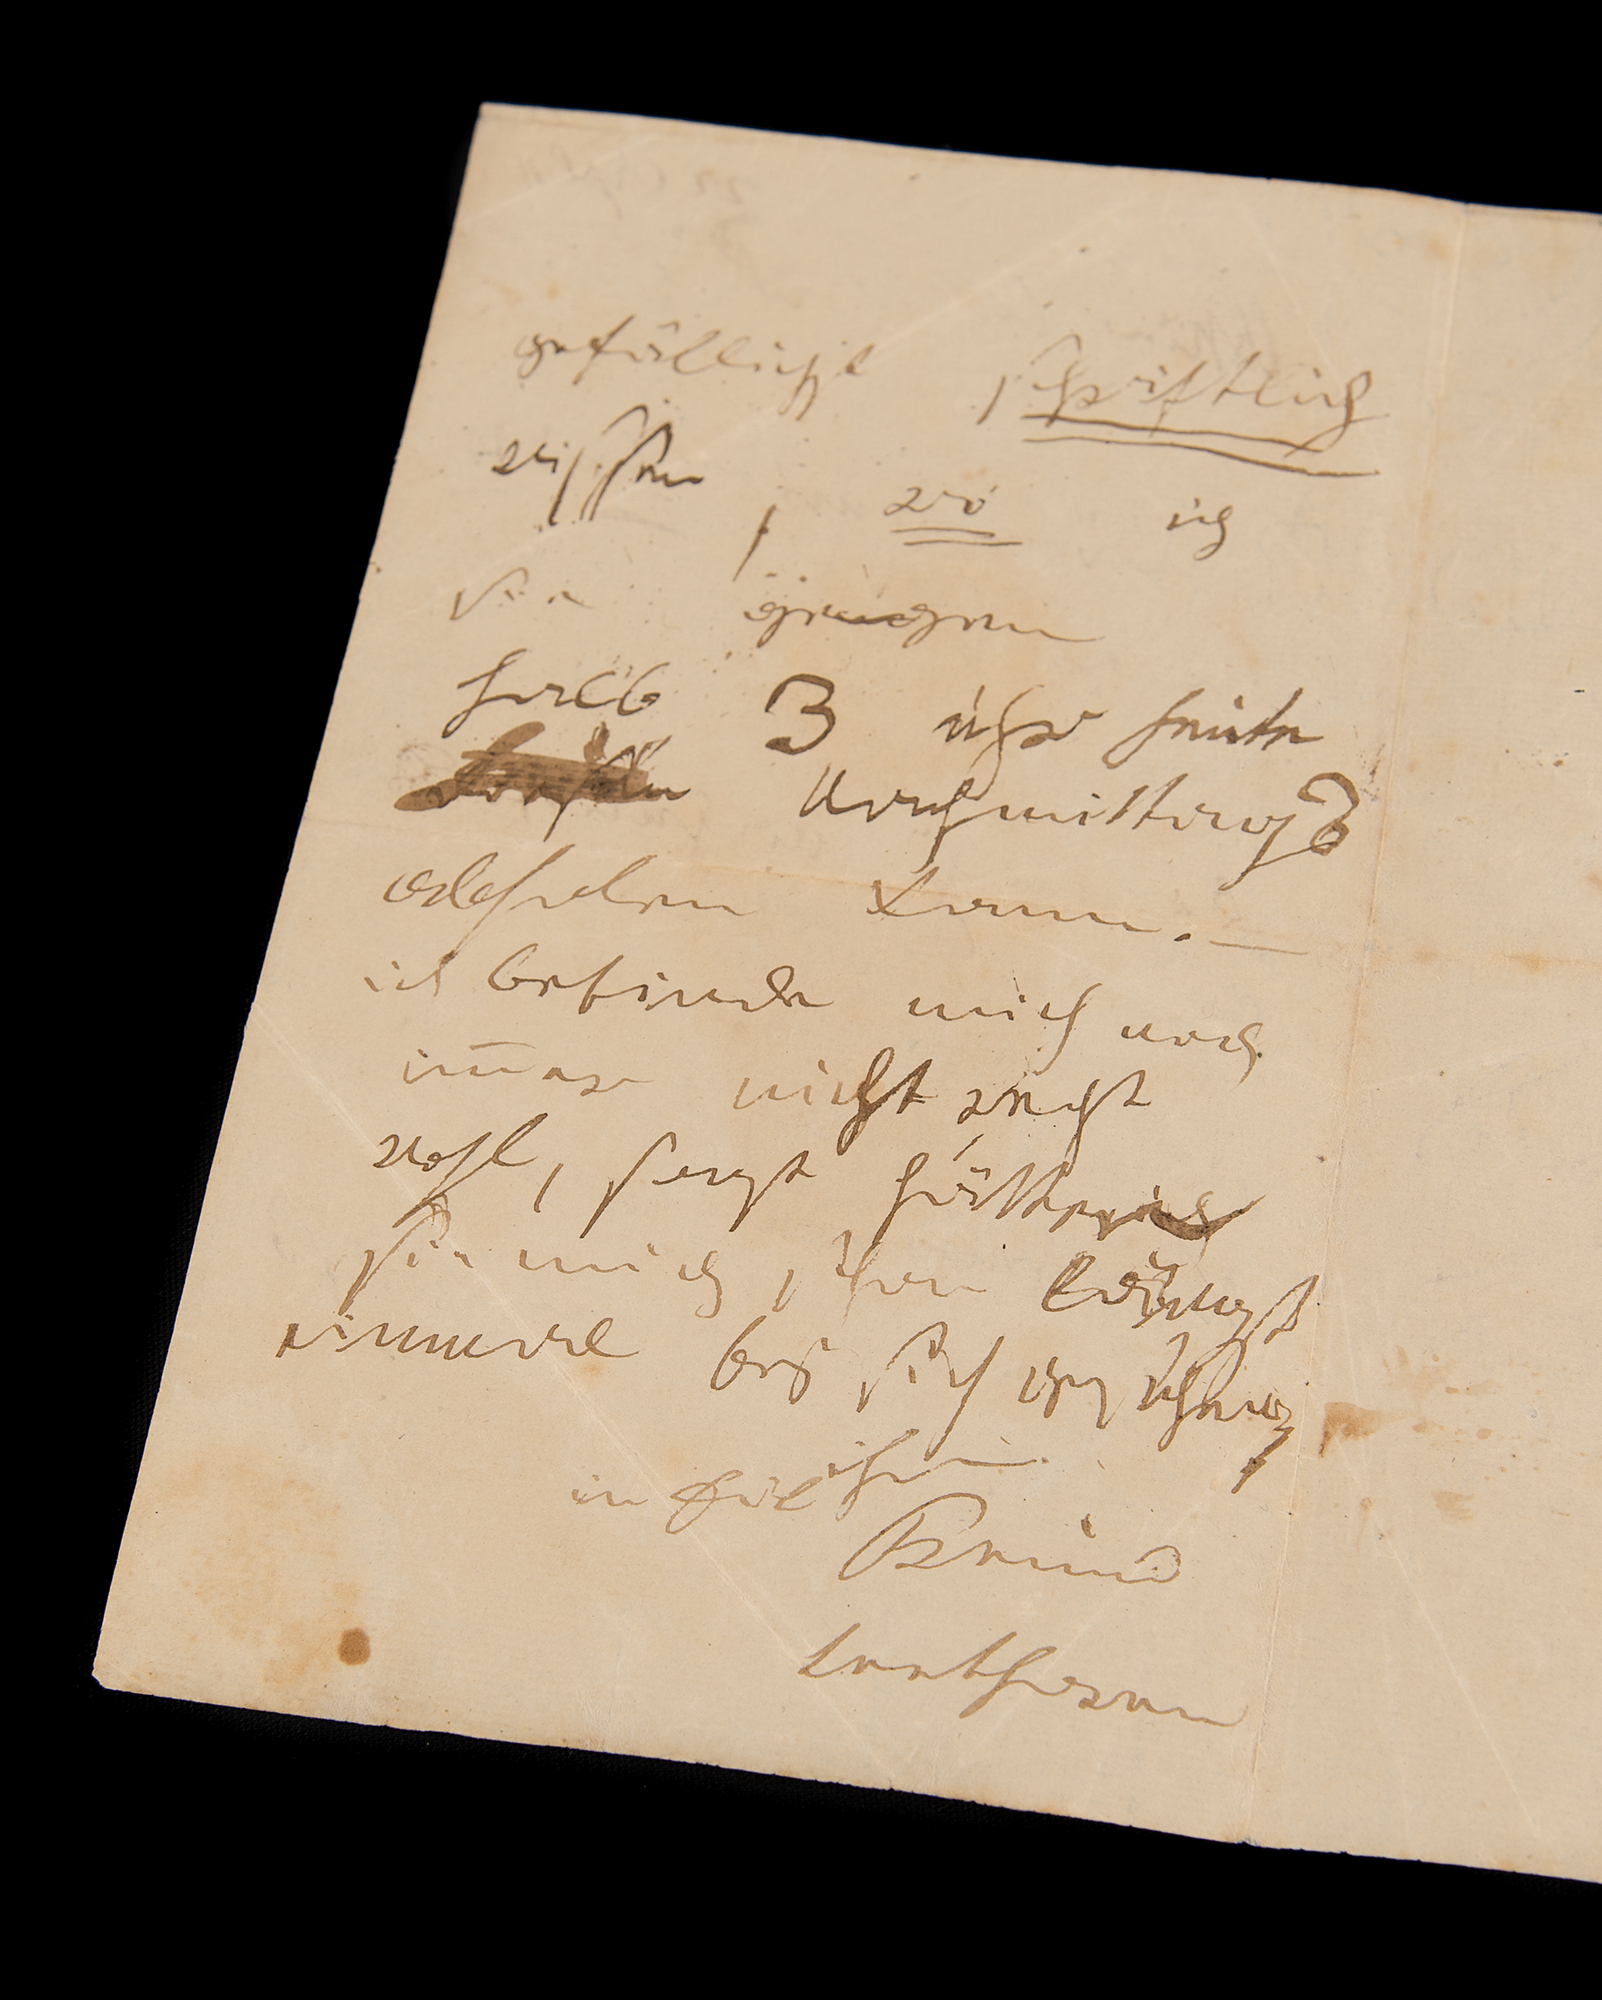 gefälligst schriftlich
wissen, wo ich
sie gegen
halb 3 uhr heute
Nachmittags
abholen kann. —
ich befinde mich noch
im̅er nicht recht
wohl, sonst hätten
sie mich schon längst
einmal bey sich gesehen,
in Eil ihr
Freund
Beethoven